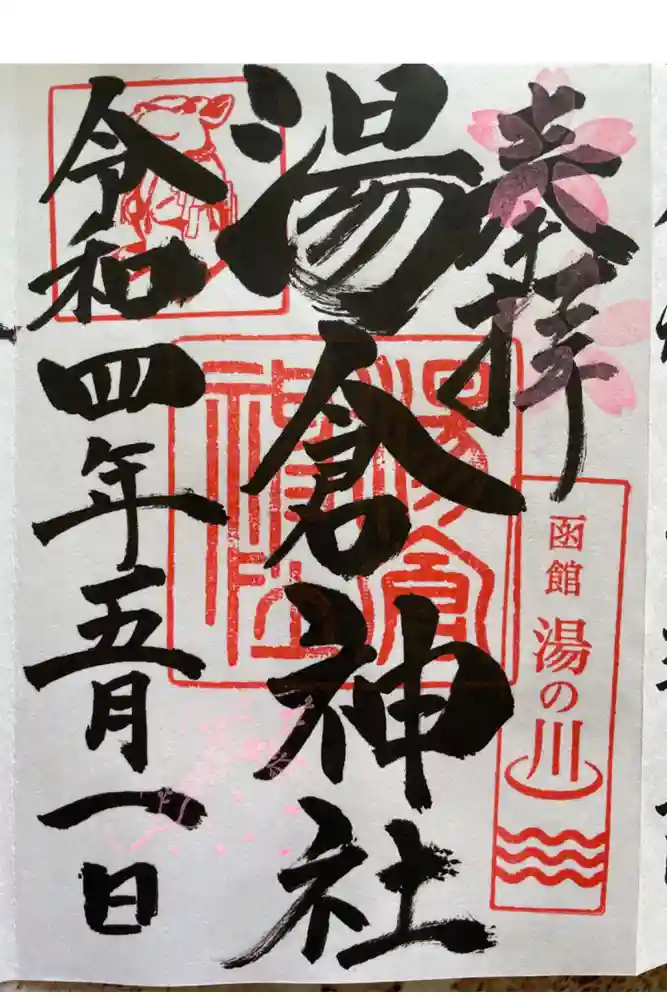 奉拝
函館
湯の川
湯倉神社
湯倉神社
令和四年五月一日